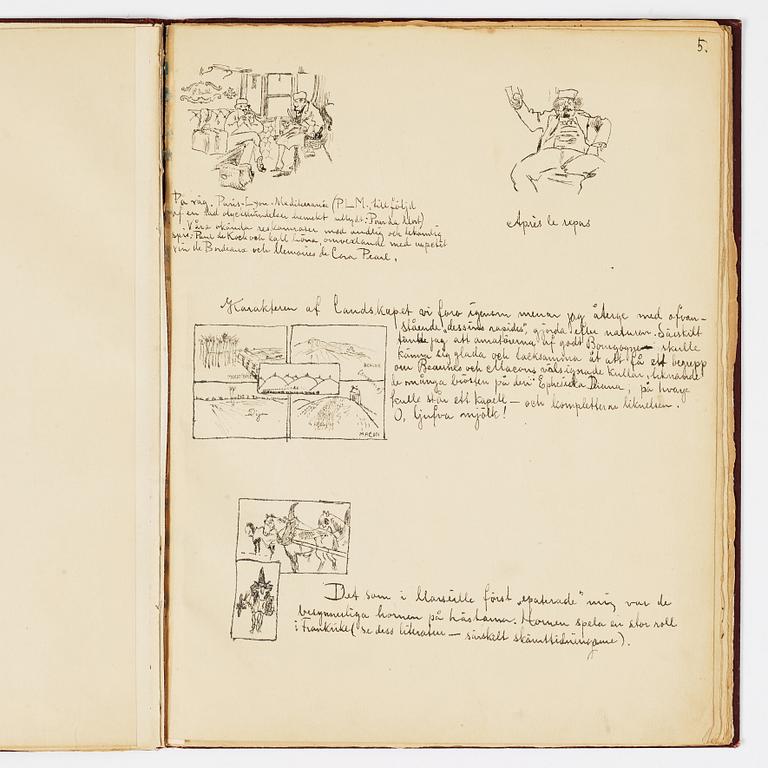 5.
På väg. Paris-Lyon-Mediterranée (P.L.M., till följd
af en olyckshändelse uttydt: Pour la Mort)
Våra okända reskamrater med andlig och lekamlig
spis: Paul de Kock och kall höna, omvexlande med
vin de Bordeaux och Memoires de Cora Pearl.
Après le repas
Karakteren af landskapet vi foro igenom menar jag återge med ofvan-
stående „dessins rapides", gjorda efter naturen. Särskilt
tänkte jag att amatörerna af godt Bourgogne skulle
känna sig glada och tacksamma åt att få ett begrepp
om Beaunes och Macons välsignade kullar, liknande
de många brösten på den Ephesiska Diana, på hvarje
kulle står ett kapell — och kompletterar liknelsen.
O, ljufva mjölk!
BEAUNE
Dijon
MACON
Det som i Marseille först „epaterade" mig var de
besynnerliga hornen på hästarna. Hornen spela en stor roll
i Frankrike (se dess litteratur — särskilt skämttidningarne).